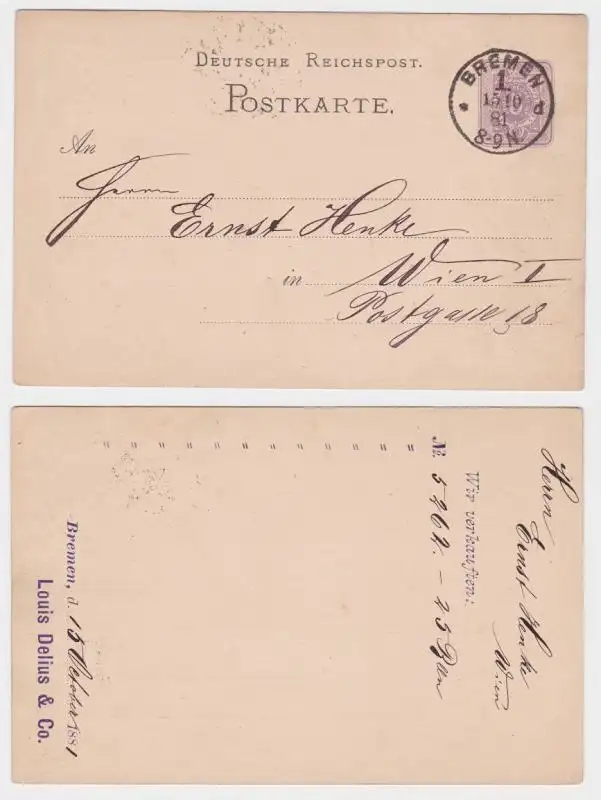 DEUTSCHE REICHSPOST.
POSTKARTE.
BREMEN
1.
15 10
81
8-9 N
* d
An
Herrn
Ernst Henke
in Wien I
Postgasse 18
Herrn
Ernst Henke
Wien
Wir verkauften:
No. 5262. – 25
" " " " " " " " " " " "
Bremen, d. 15 October 1881
Louis Delius & Co.